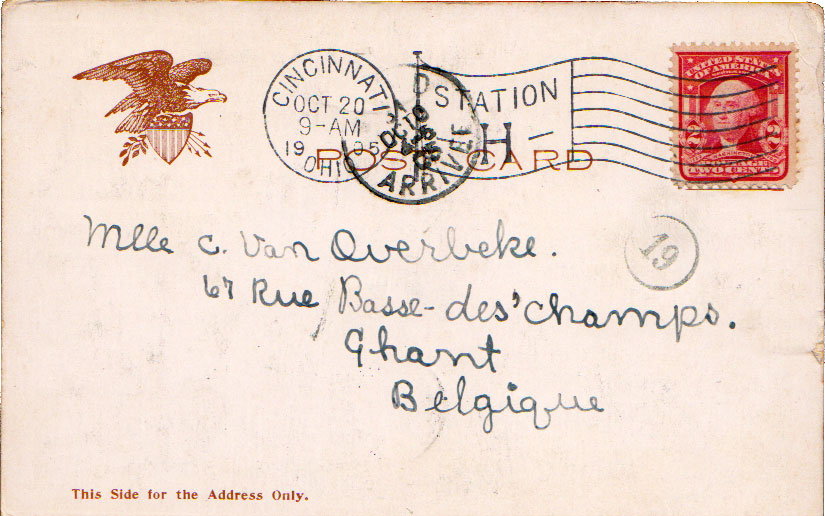 CINCINNATI
OCT 20
9-AM
1905
OHIO
STATION
H
ARRIVÉE
UNITED STATES
OF AMERICA
2 2
TWO CENTS
POST CARD
Mlle C. Van Overbeke.
19
67 Rue Basse-des'champs.
Ghant
Belgique
This Side for the Address Only.